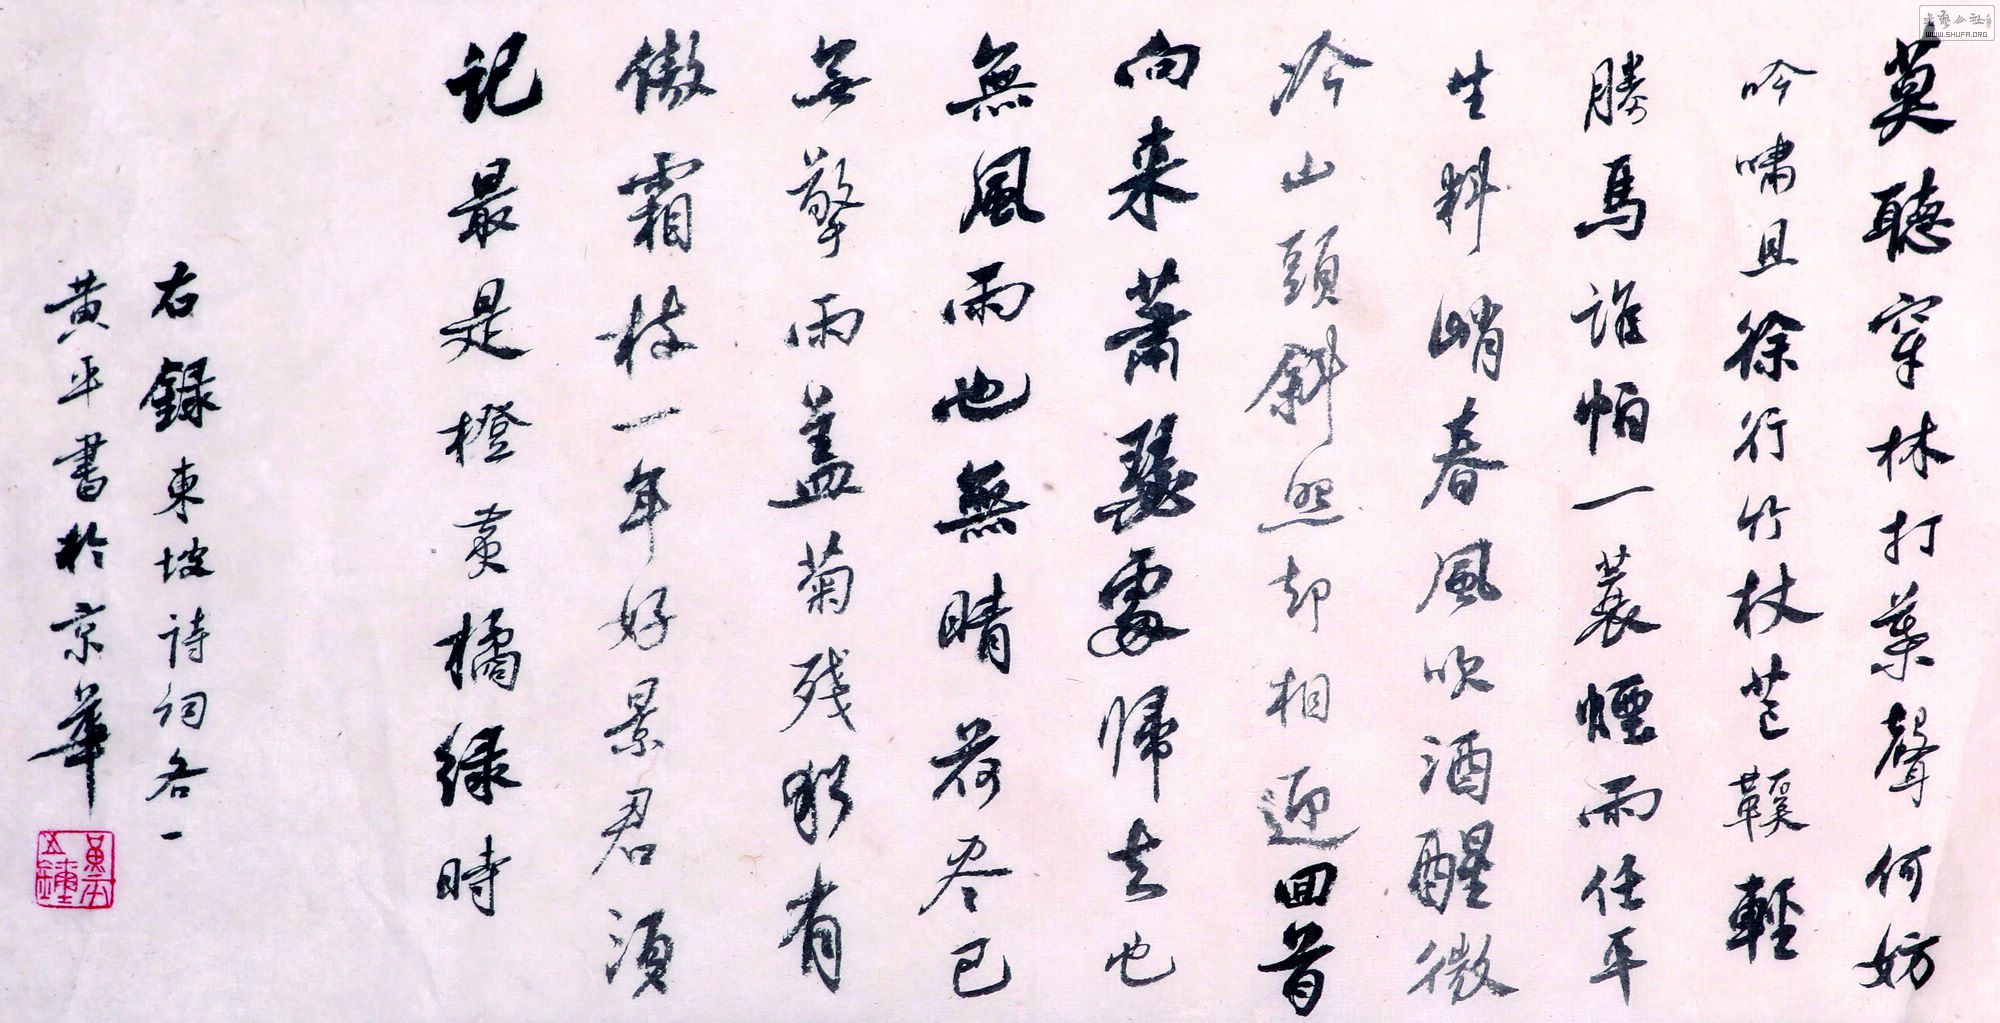 莫聽穿林打葉聲何妨
吟嘯且徐行竹杖芒鞵輕
勝馬誰怕一蓑煙雨任平
生料峭春風吹酒醒微
冷山頭斜照却相迎回首
向来蕭瑟處歸去也
無風雨也無晴荷尽已
無擎雨盖菊残猶有
傲霜枝一年好景君須
記最是橙黄橘緑時
右錄東坡诗词各一
黄平書於京華
WWW.SHUFA.ORG